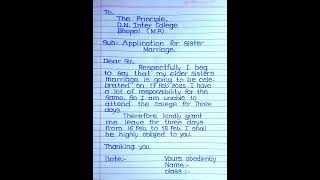 To,
The Principle,
D.N. Inter College
Bhopal (M.P.)
Sub:- Application for Sister
Marriage.
Dear Sir,
Respectfully I beg
to say that my elder sisters
marriage is going to be cele
brated on 17 Feb 2025 I have
a lot of responsibility for the
same. So I am unable to
attend the college for Three
days.
Therefore kindly grant
me leave for three days
from 16 Feb. to 18 Feb. I shall
be highly obliged to you.
Thanking you.
Date:- Yours obediently
Name:-
class :-